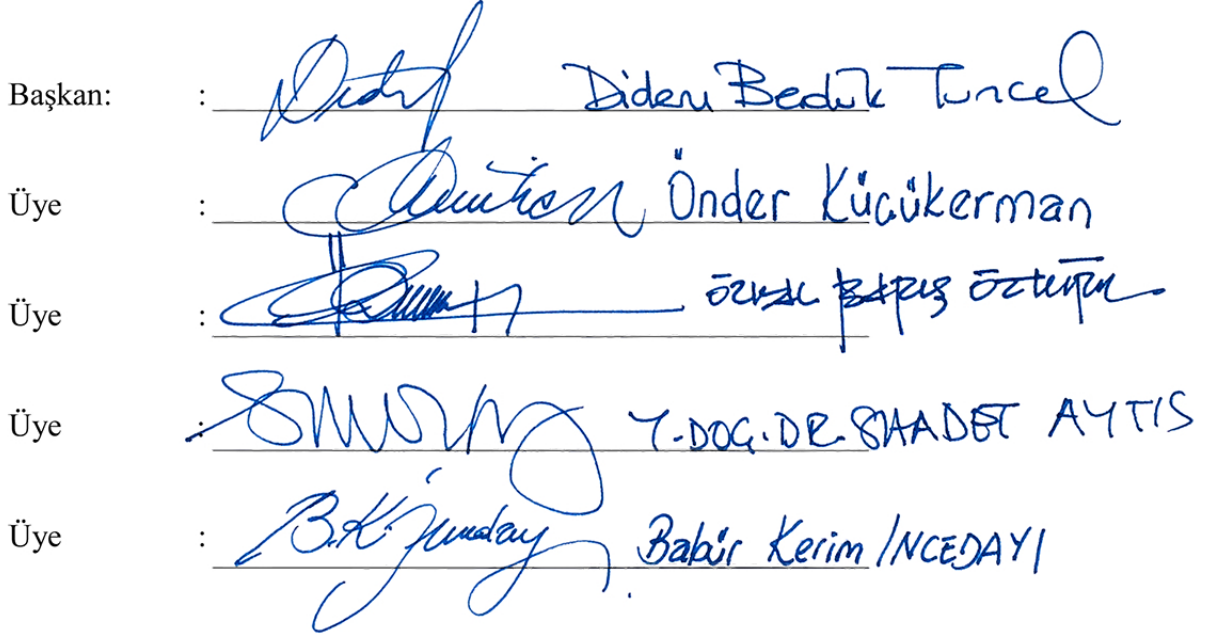 Başkan: : Didem Bedük Tuncel
Üye : Önder Küçükerman
Üye : Barış Öztürk
Üye : Y.DOÇ.DR. SAADET AYTIS
Üye : B.K. Babür Kerim İNCEDAYI